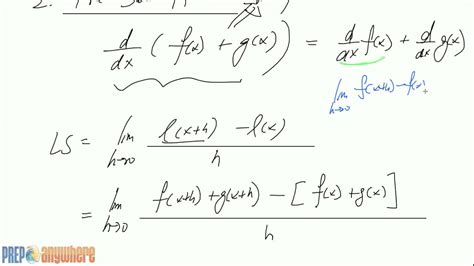 2.
d/dx (f(x) + g(x)) = d/dx f(x) + d/dx g(x)
lim h→0 f(x+h) - f(x)
LS = lim h→0 (l(x+h) - l(x)) / h
= lim h→0 (f(x+h) + g(x+h) - [f(x) + g(x)]) / h
PREP anywhere